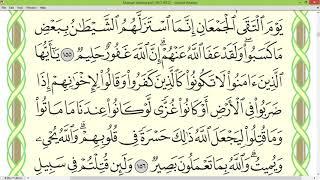 يَوْمَ ٱلْتَقَى ٱلْجَمْعَانِ إِنَّمَا ٱسْتَزَلَّهُمُ ٱلشَّيْطَٰنُ بِبَعْضِ
مَا كَسَبُوا۟ ۖ وَلَقَدْ عَفَا ٱللَّهُ عَنْهُمْ ۗ إِنَّ ٱللَّهَ غَفُورٌ حَلِيمٌ ١٥٥ يَٰٓأَيُّهَا
ٱلَّذِينَ ءَامَنُوا۟ لَا تَكُونُوا۟ كَٱلَّذِينَ كَفَرُوا۟ وَقَالُوا۟ لِإِخْوَٰنِهِمْ إِذَا
ضَرَبُوا۟ فِى ٱلْأَرْضِ أَوْ كَانُوا۟ غُزًّى لَّوْ كَانُوا۟ عِندَنَا مَا مَاتُوا۟
وَمَا قُتِلُوا۟ لِيَجْعَلَ ٱللَّهُ ذَٰلِكَ حَسْرَةً فِى قُلُوبِهِمْ ۗ وَٱللَّهُ يُحْىِۦ
وَيُمِيتُ ۗ وَٱللَّهُ بِمَا تَعْمَلُونَ بَصِيرٌ ١٥٦ وَلَئِن قُتِلْتُمْ فِى سَبِيلِ